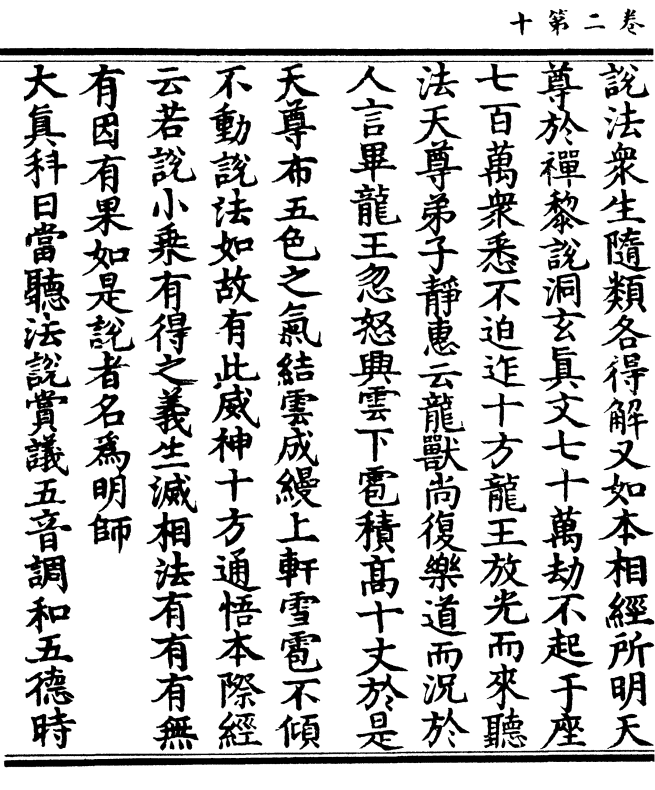 卷二第十
說法衆生隨類各得解又如本相經所明天
尊於禪黎說洞玄眞文七十萬劫不起于座
七百萬衆悉不迫迮十方龍王放光而來聽
法天尊弟子靜惠云龍獸尚復樂道而況於
人言畢龍王忽怒興雲下雹積高十丈於是
天尊布五色之氣結雲成縵上軒雪雹不傾
不動說法如故有此威神十方通悟本際經
云若說小乘有得之義生滅相法有有有無
有因有果如是說者名爲明師
大眞科曰當聽法說賞議五音調和五德時